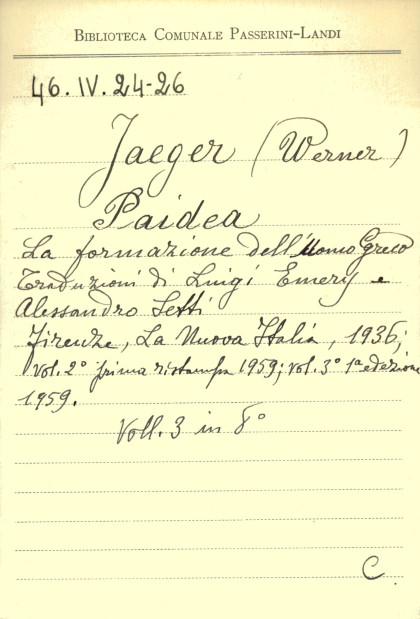 BIBLIOTECA COMUNALE PASSERINI-LANDI
46. IV. 24-26
Jaeger (Werner)
Paidea
La formazione dell'Uomo Greco
Traduzioni di Luigi Emery e
Alessandro Setti
Firenze, La Nuova Italia, 1936;
vol. 2° prima ristampa 1959; vol. 3° 1a edizione
1959.
Voll. 3 in 8°
C